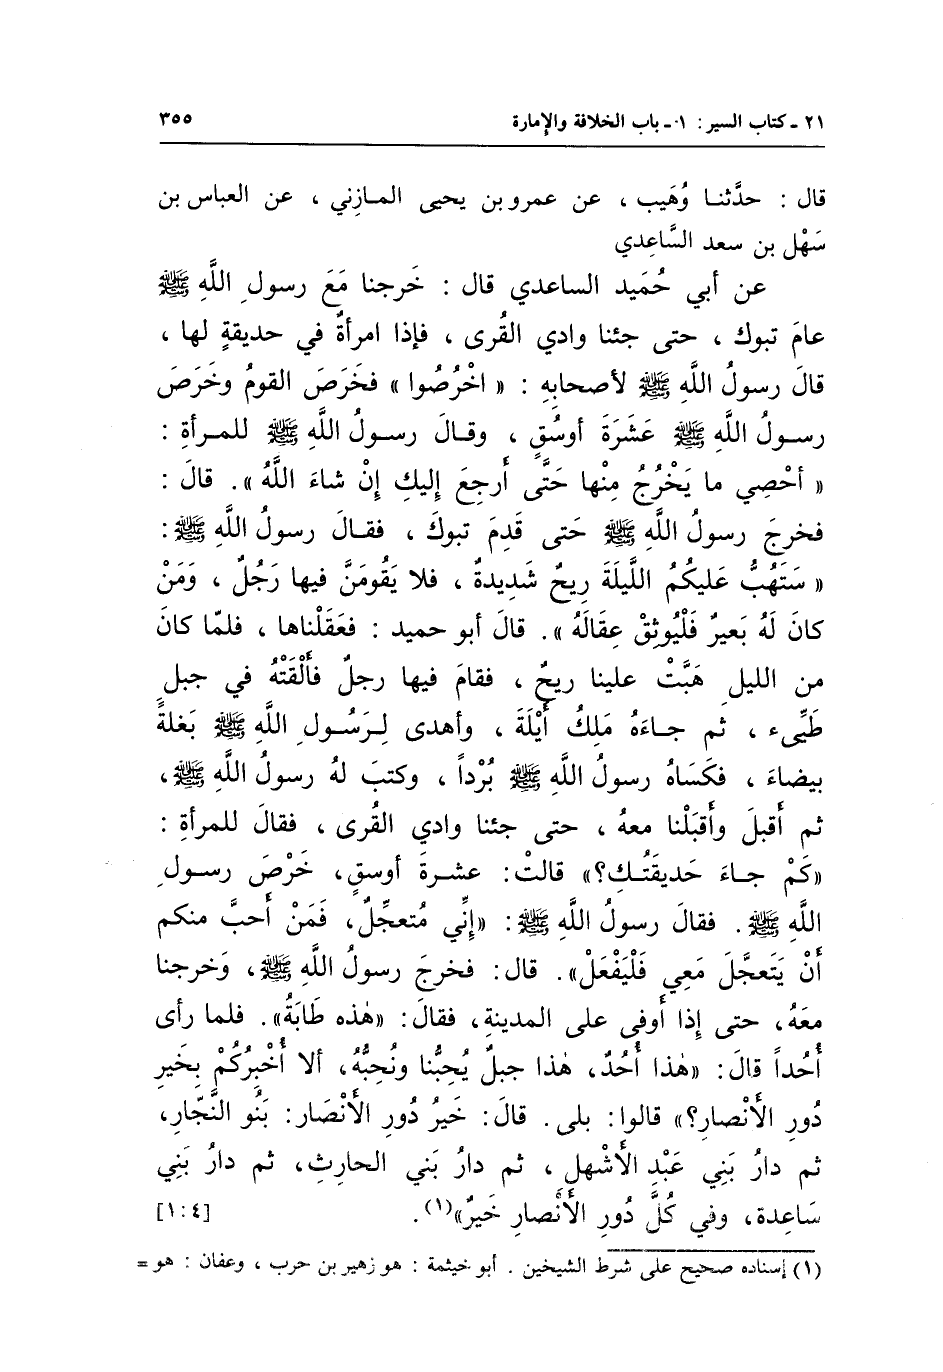 ٢١ ـ كتاب السير : ١٠ ـ باب الخلافة والإمارة ٣٥٥
قال : حدَّثنا وُهَيب ، عن عمرو بن يحيى المازِني ، عن العباس بن
سَهْل بن سعد السَّاعِدي
عن أبي حُمَيد الساعدي قال : خَرجنا مَعَ رسولِ اللَّهِ ﷺ
عامَ تبوك ، حتى جئنا وادي القُرى ، فإذا امرأةٌ في حديقةٍ لها ،
قالَ رسولُ اللَّهِ ﷺ لأصحابِهِ : « اخْرُصُوا » فخَرَصَ القومُ وخَرَصَ
رسولُ اللَّهِ ﷺ عَشَرَةَ أوسُقٍ ، وقالَ رسولُ اللَّهِ ﷺ للمرأةِ :
« أحْصِي ما يَخْرُجُ مِنْها حَتَّى أَرجِعَ إليكِ إنْ شاءَ اللَّهُ ». قالَ :
فخرجَ رسولُ اللَّهِ ﷺ حَتى قَدِمَ تبوكَ ، فقالَ رسولُ اللَّهِ ﷺ :
« سَتَهُبُّ عَليكُم اللَّيلَةَ رِيحٌ شَدِيدةٌ ، فلا يَقُومَنَّ فيها رَجُلٌ ، وَمَنْ
كانَ لَهُ بَعيرٌ فَلْيُوثِقْ عِقَالَهُ ». قالَ أبو حميد : فعَقَلْناها ، فلمّا كانَ
من الليلِ هَبَّتْ علينا ريحٌ ، فقامَ فيها رجلٌ فأَلْقَتْهُ في جبلِ
طَيِّىء ، ثم جاءَهُ مَلِكُ أَيْلَةَ ، وأهدى لِرَسُولِ اللَّهِ ﷺ بَغلةً
بيضاءَ ، فكَسَاهُ رسولُ اللَّهِ ﷺ بُرْداً ، وكتبَ لهُ رسولُ اللَّهِ ﷺ ،
ثم أَقبلَ وأَقبَلْنا معهُ ، حتى جئنا وادي القُرى ، فقالَ للمرأةِ :
«كَمْ جاءَ حَديقَتُكِ؟» قالتْ: عشرةَ أوسقٍ، خَرْصَ رسولِ
اللَّهِ ﷺ . فقالَ رسولُ اللَّهِ ﷺ : «إنِّي مُتعجِّلٌ، فَمَنْ أَحبَّ منكم
أَنْ يَتَعجَّلَ مَعِي فَلْيَفْعَلْ». قال: فخرجَ رسولُ اللَّهِ ﷺ، وَخرجنا
معَهُ، حتى إذا أَوفى على المدينةِ، فقالَ: «هٰذه طَابَةُ». فلما رأى
أُحُداً قالَ: «هٰذا أُحُدٌ، هٰذا جبلٌ يُحِبُّنا ونُحِبُّهُ، ألا أُخْبِرُكُمْ بِخَيرِ
دُورِ الأَنْصارِ؟» قالوا: بلى. قالَ: خَيرُ دُورِ الأَنْصَارِ: بَنُو النَّجّارِ،
ثم دارُ بَنِي عَبْدِ الأَشْهلِ ، ثم دارُ بَني الحارِثِ، ثم دارُ بَنِي
سَاعِدة، وفي كُلِّ دُورِ الأَنْصارِ خَيرٌ»(١) . [١:٤]
(١) إسناده صحيح على شرط الشيخين . أبو خيثمة : هو زهير بن حرب ، وعفان : هو =